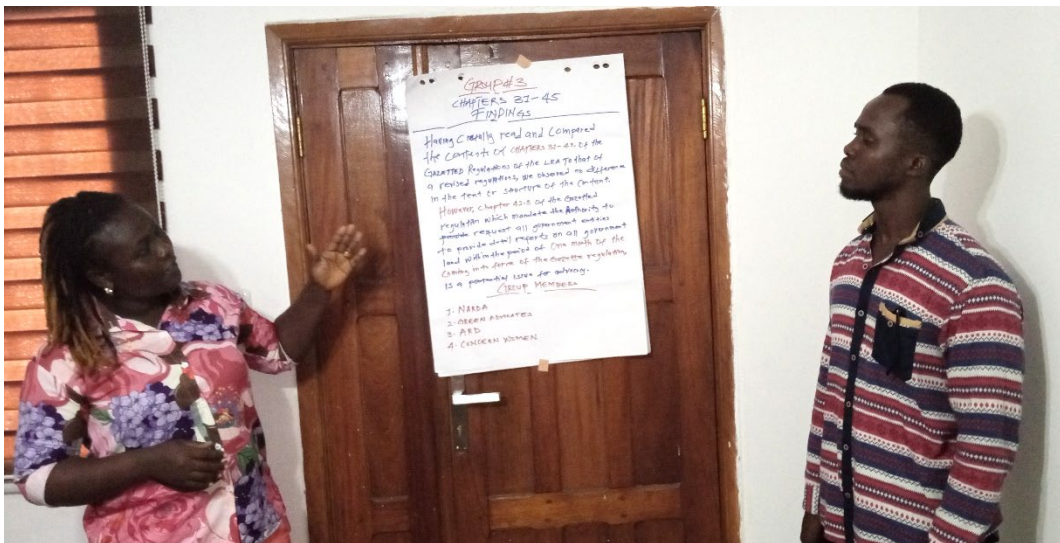 GROUP #3
CHAPTERS 31-45
FINDINGS
Having Carefully read and Compared
the Contents of CHAPTERS 31-45 of the
GAZETTED Regulations of the LRA To that of
a revised regulations, we observed no difference
in the text or structure of the Content.
However, Chapter of the Gazetted
regulation which mandate the Authority to
request all government entities
to provide detail reports on all government
land within the period of One month of the
Coming into force of the Gazette regulation,
is a potential issue for advocacy.
GROUP MEMBERS
1- NARDA
2- GREEN ADVOCATES
3- ARD
4- CONCERN WOMEN